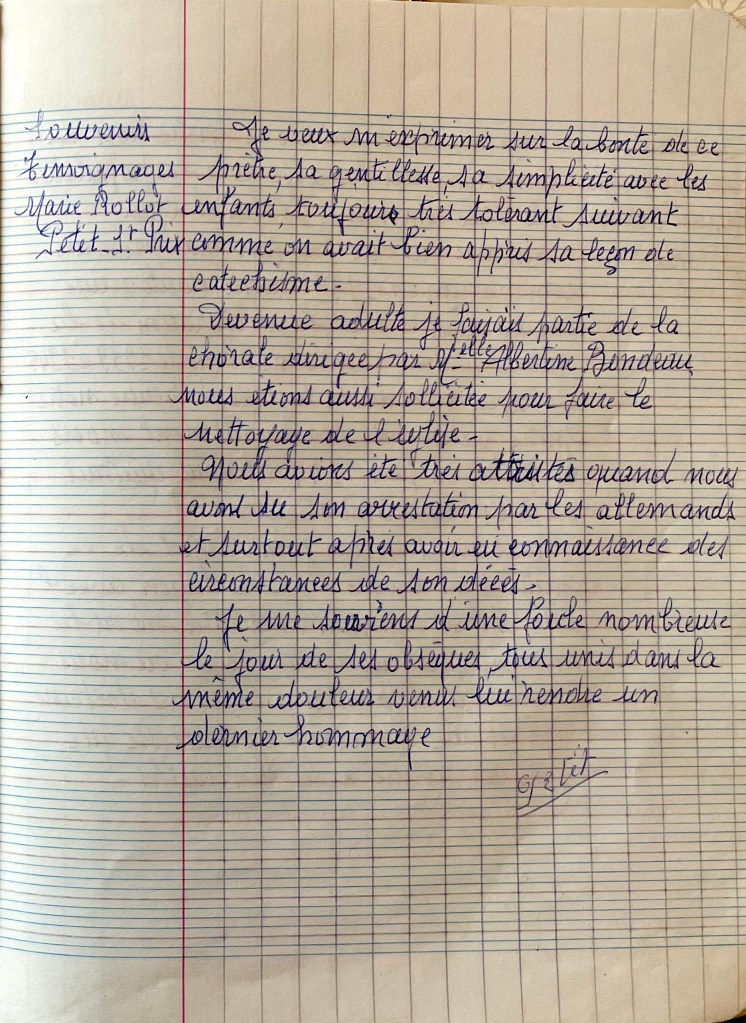 Souvenirs
témoignages
Marie Rollot
Petit - St Prix
Je veux m'exprimer sur la bonté de ce
prêtre, sa gentillesse, sa simplicité avec les
enfants, toujours très tolérant suivant
comme on avait bien appris sa leçon de
catechisme -
Devenue adulte je faisais partie de la
chorale dirigée par Melle Albertine Bondeau
nous étions aussi sollicitée pour faire le
nettoyage de l'église -
Nous avions été très attristés quand nous
avons su son arrestation par les allemands
et surtout après avoir eu connaissance des
circonstances de son décès.
Je me souviens d'une foule nombreuse
le jour de ses obsèques, tous unis dans la
même douleur venus lui rendre un
dernier hommage